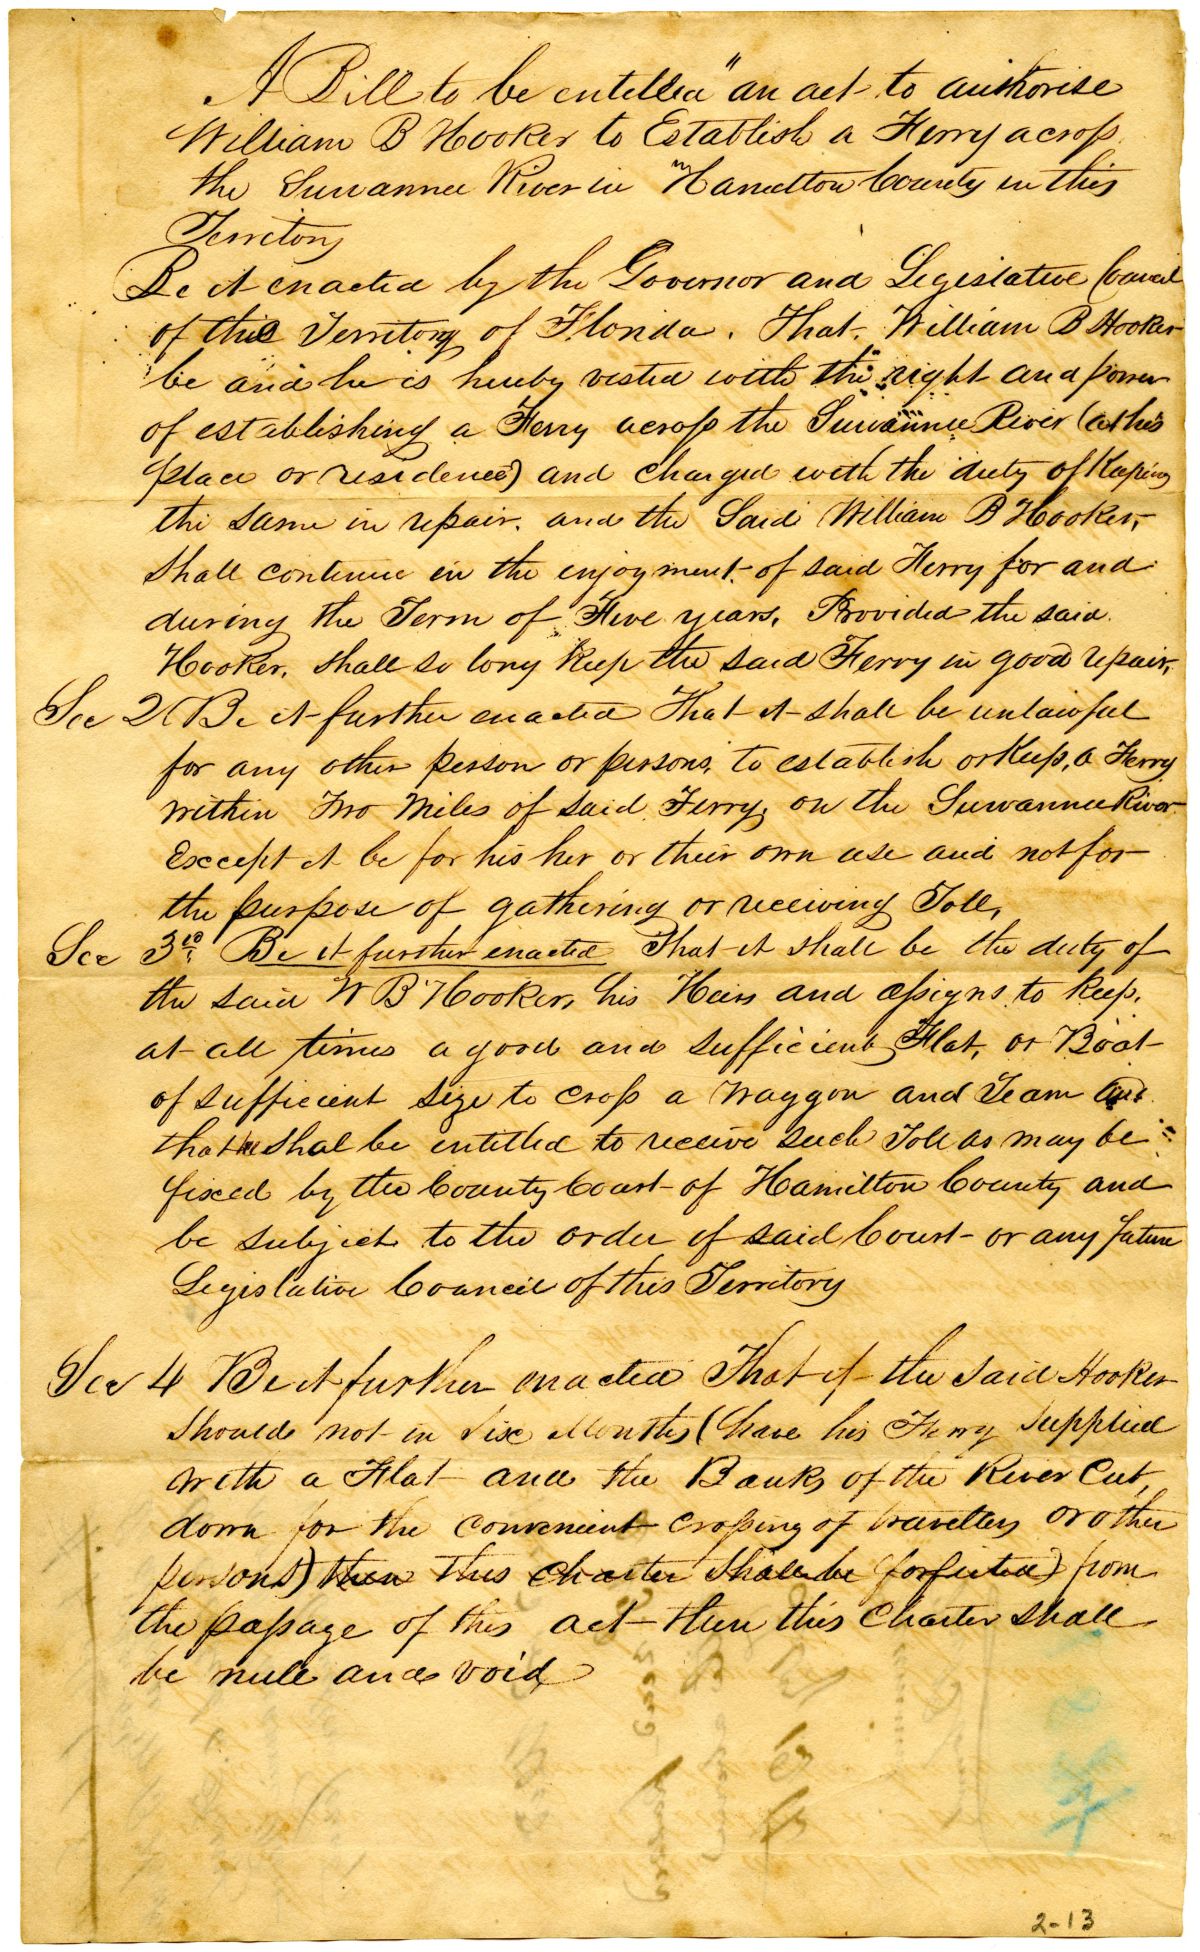 A Bill to be entitled "an act to authorise
William B Hooker to Establish a Ferry across
the Suwannee River in Hamilton County in this
Territory
Be it enacted by the Governor and Legislative Council
of the Territory of Florida. That, William B Hooker
be and he is hereby vested with the right and power
of establishing a Ferry across the Suwannee River (at his
place or residence) and charged with the duty of Keeping
the same in repair. and the Said William B Hooker,
Shall continue in the enjoyment of said Ferry for and
during the Term of Five years, Provided the said
Hooker, shall so long keep the said Ferry in good repair,
Sec 2 Be it further enacted That it shall be unlawful
for any other person or persons, to establish or Keep, a Ferry
within Two Miles of said Ferry, on the Suwannee River
Exccept it be for his her or their own use and not for
the purpose of gathering or receiving Toll,
Sec 3rd, Be it further enacted That it shall be the duty of
the said W B Hooker, his Heirs and assigns, to keep,
at all times a good and sufficient Flat, or Boat
of sufficient size to cross a waggon and Team and
that he shal be entitled to receive such Toll as may be
fixed by the County Court of Hamilton County and
be subject to the order of said Court or any future
Legislative Council of this Territory
Sec 4 Be it further enacted That if the said Hooker
should not in Six Months (have his Ferry supplied
with a Flat and the Banks of the River Cut,
down for the convenient crossing of travellers or other
persons) then this charter shall be forfieted) from
the passage of this act then this Charter shall
be null and void
2-13